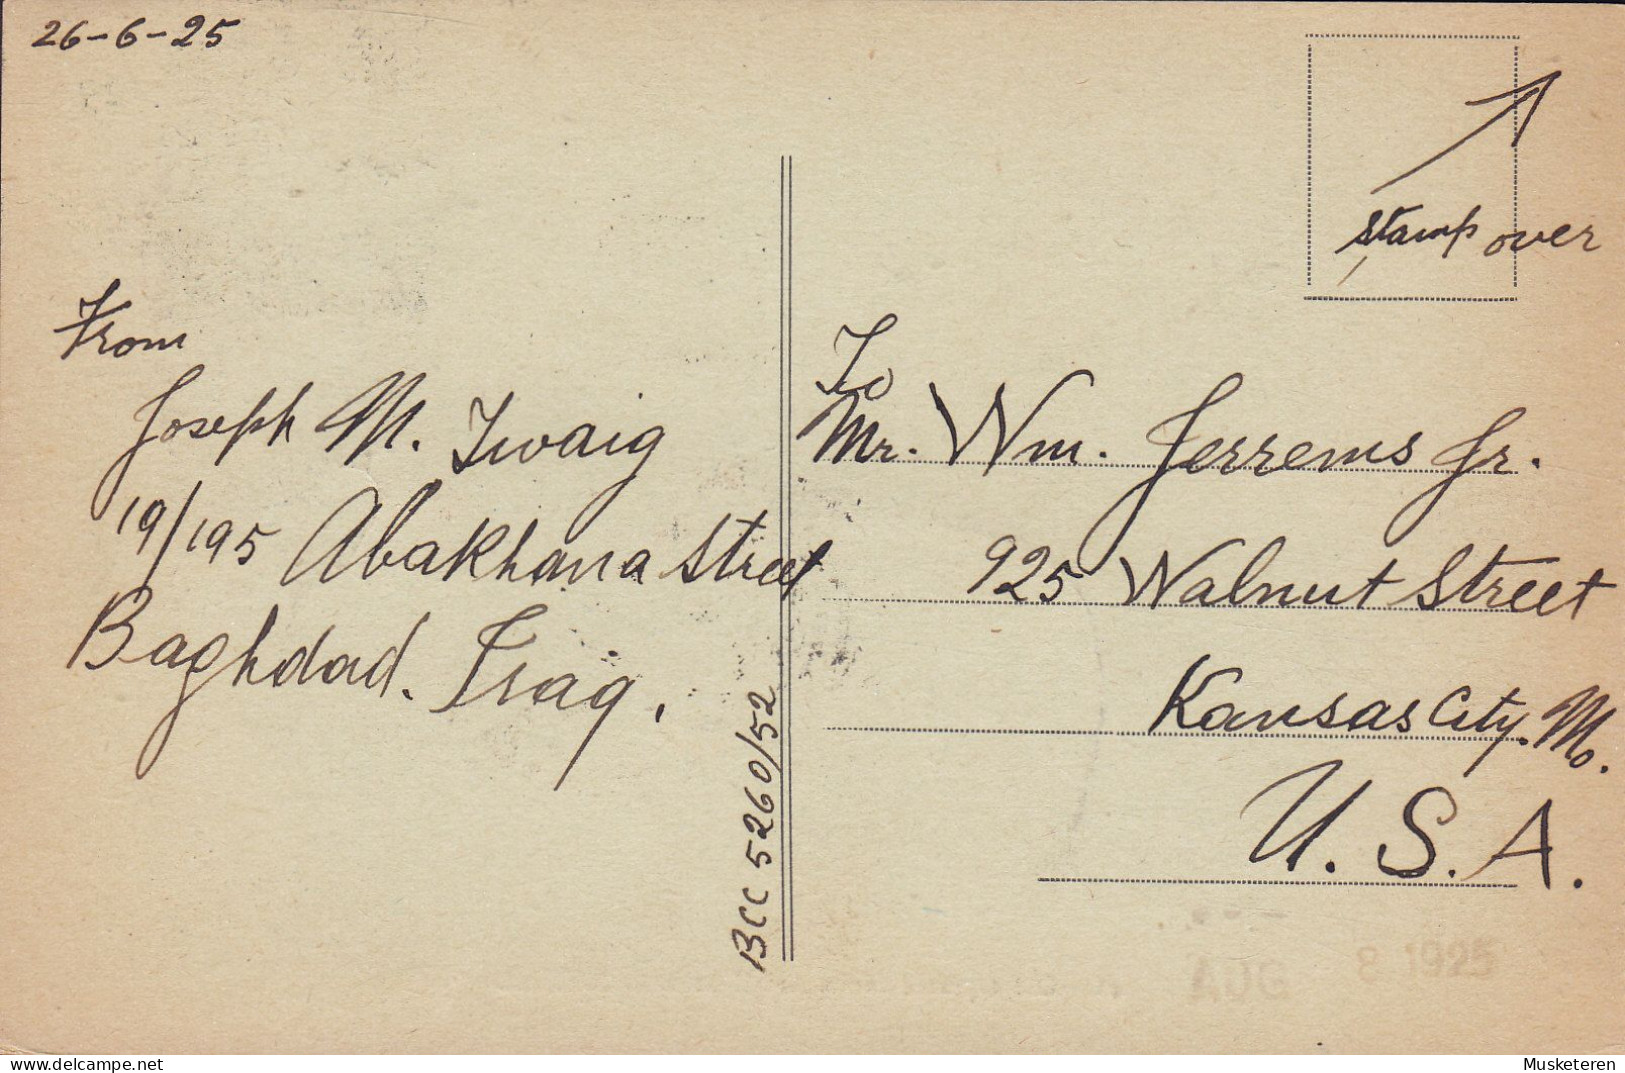 26-6-25
stamp over
From
Joseph M. Twaig
19/195 Abakhana Street
Baghdad. Iraq.
BCC 5260/52
To
Mr. Wm. Jerrems Jr.
925 Walnut Street
Kansas City. Mo.
U.S.A.
AUG 8 1925
delcampe.net
Musketeren